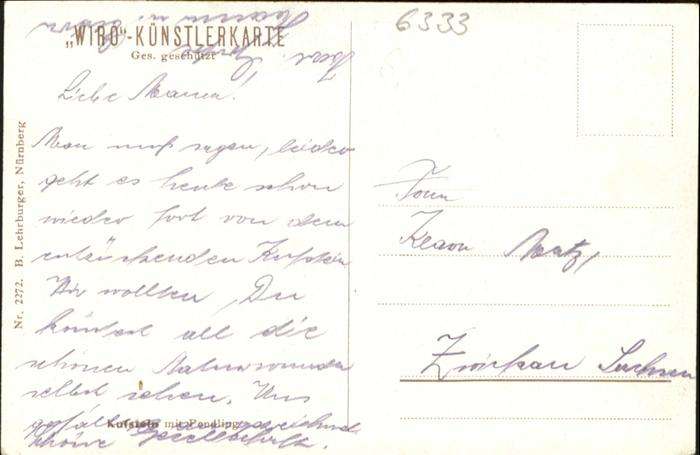 6333
„WIRO“-KÜNSTLERKARTE
Ges. geschützt
Liebe Mama!
Man muß sagen, leider
geht es heute schon
wieder fort von dem
entzückenden Kufstein
Wir wollten, Du
könntest all die
schönen Naturwunder
selbst sehen. Uns
gefällt ausgezeichnet
schöne Gesellschaft.
Kufstein mit Pendling
Nr. 2272. B. Lehrburger, Nürnberg
Frau
Klara Matz,
Zwickau Sachsen